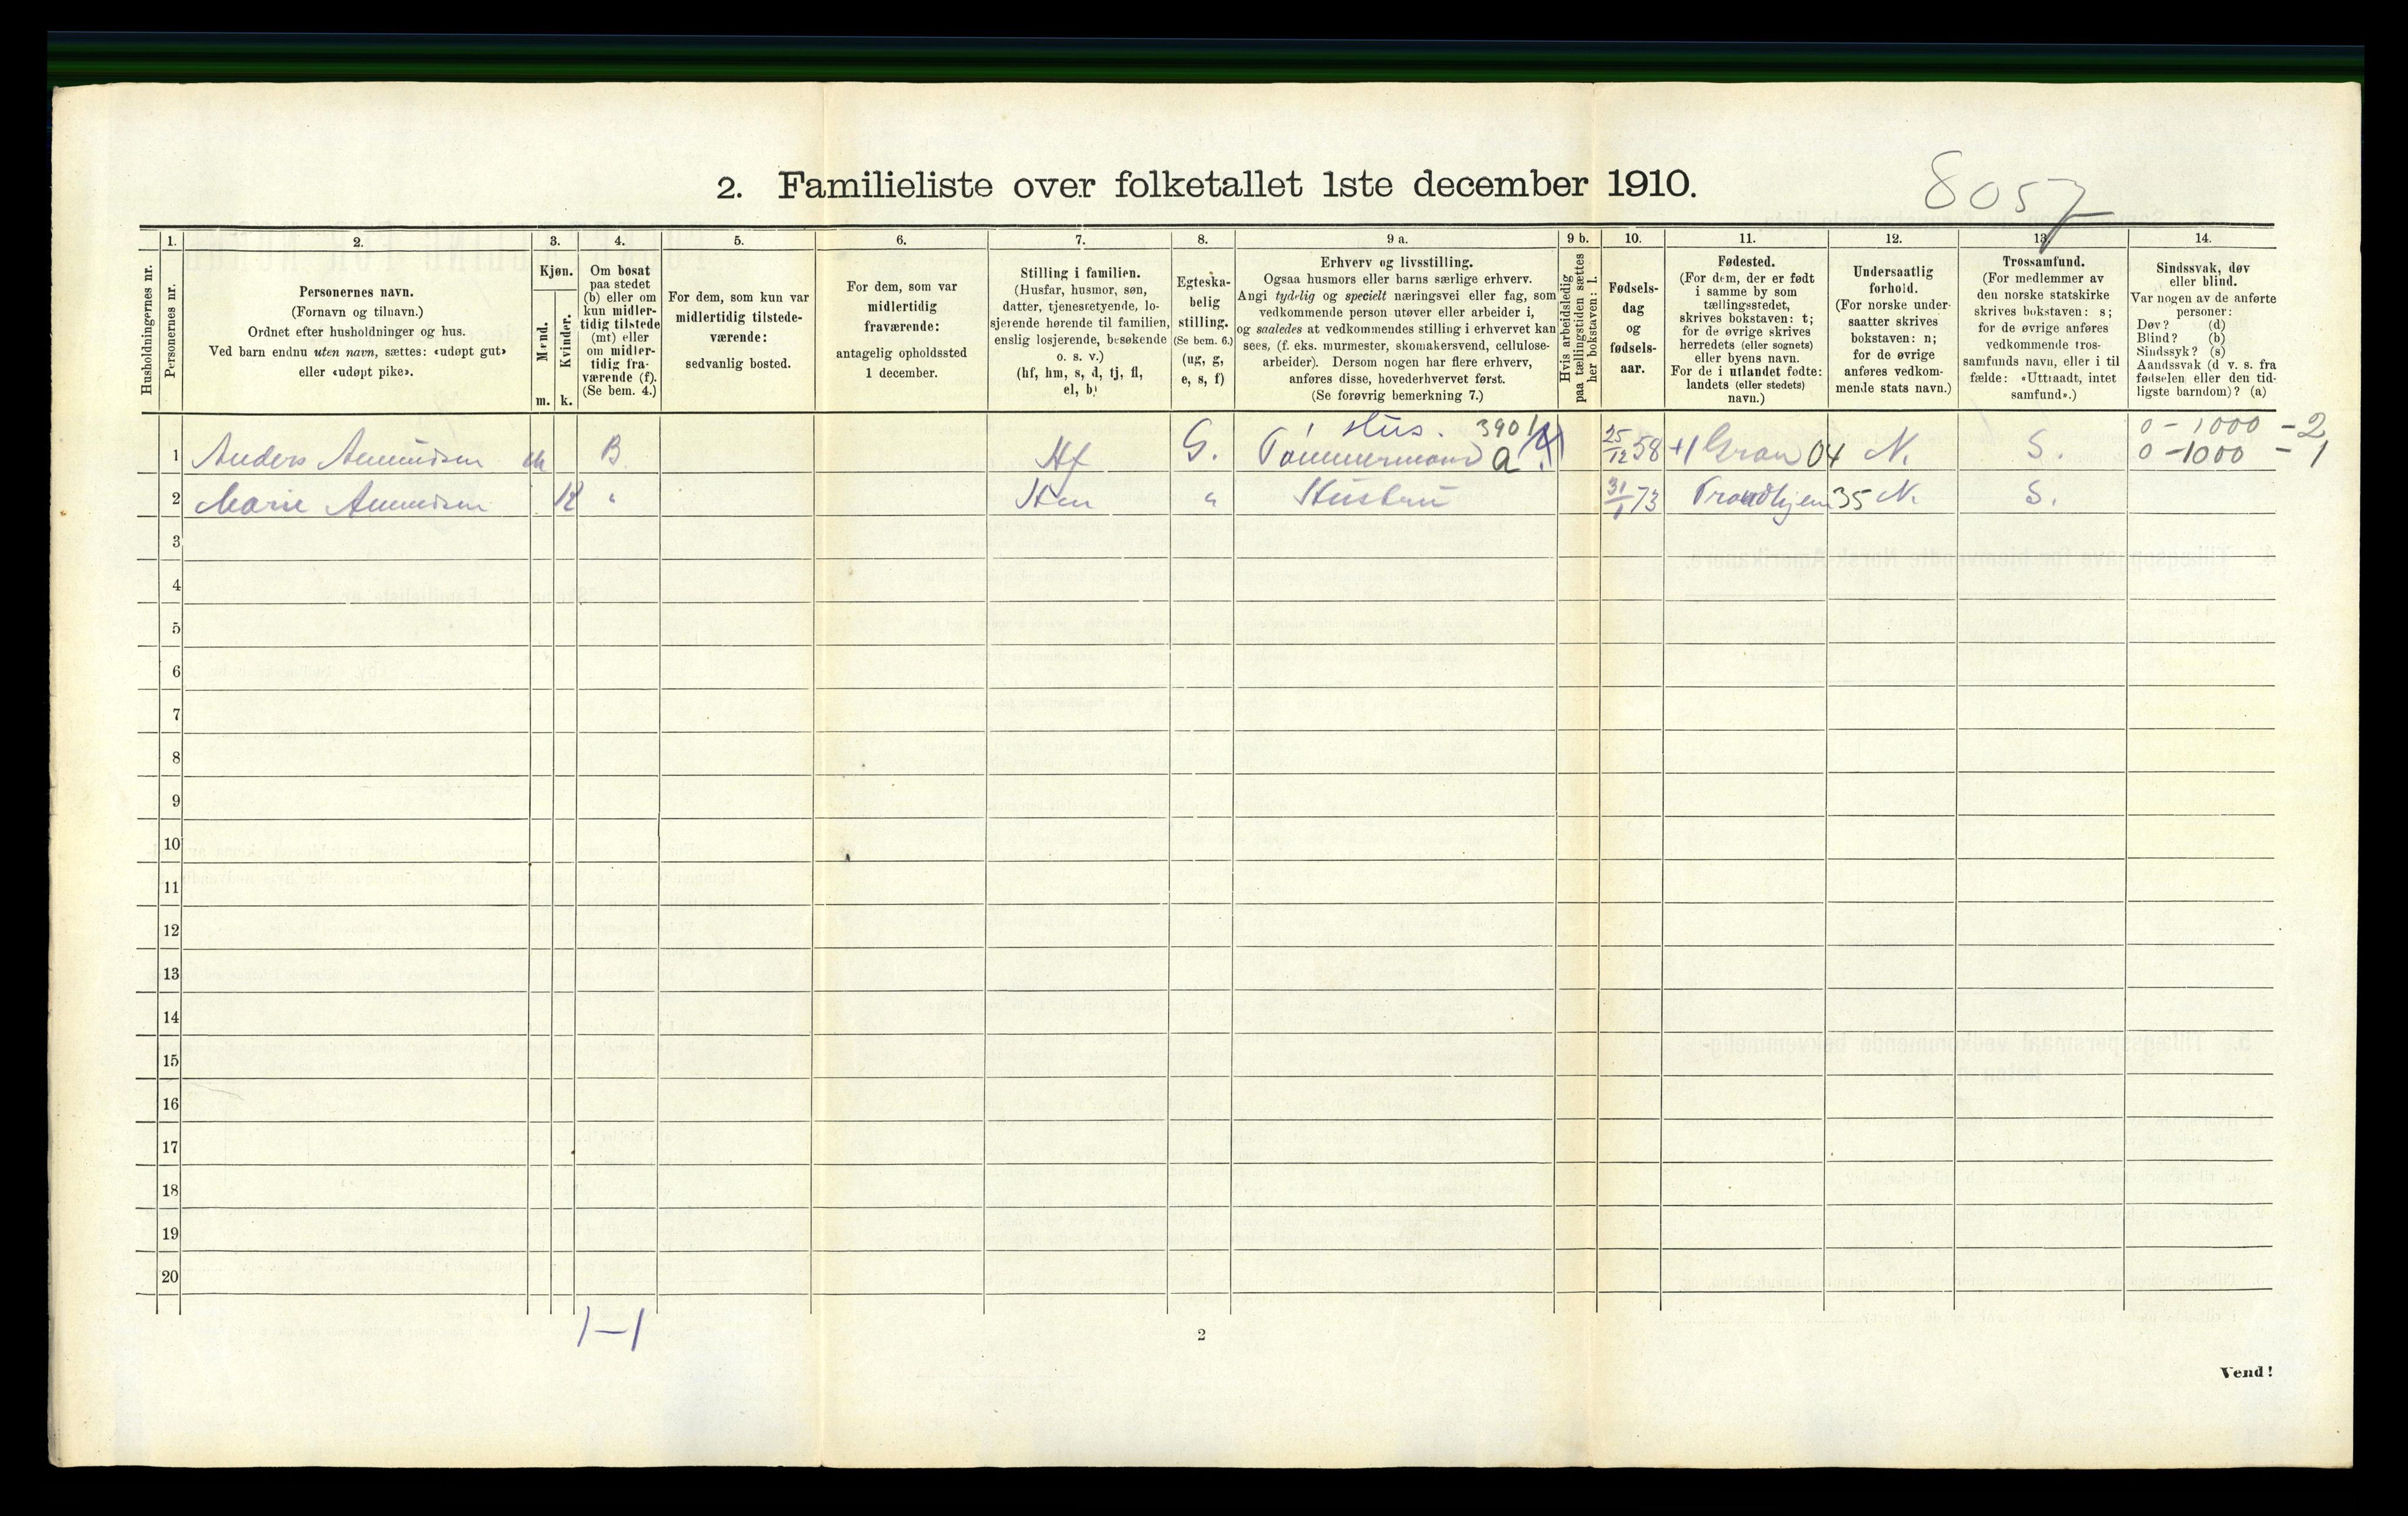 8057
2. Familieliste over folketallet 1ste december 1910.
Husholdningernes nr.
1.
Personernes nr.
2.
Personernes navn.
(Fornavn og tilnavn.)
Ordnet efter husholdninger og hus.
Ved barn endnu uten navn, sættes: «udøpt gut»
eller «udøpt pike».
3.
Kjøn.
Mænd.
Kvinder.
m. k.
4.
Om bosat
paa stedet
(b) eller om
kun midler-
tidig tilstede
(mt) eller
om midler-
tidig fra-
værende (f).
(Se bem. 4.)
5.
For dem, som kun var
midlertidig tilstede-
værende:
sedvanlig bosted.
6.
For dem, som var
midlertidig
fraværende:
antagelig opholdssted
1 december.
7.
Stilling i familien.
(Husfar, husmor, søn,
datter, tjenestetyende, lo-
sjerende hørende til familien,
enslig losjerende, besøkende
o. s. v.)
(hf, hm, s, d, tj, fl,
el, b)
8.
Egteska-
belig
stilling.
(Se bem. 6.)
(ug, g,
e, s, f)
9 a.
Erhverv og livsstilling.
Ogsaa husmors eller barns særlige erhverv.
Angi tydelig og specielt næringsvei eller fag, som
vedkommende person utøver eller arbeider i,
og saaledes at vedkommendes stilling i erhvervet kan
sees, (f. eks. murmester, skomakersvend, cellulose-
arbeider). Dersom nogen har flere erhverv,
anføres disse, hovederhvervet først.
(Se forøvrig bemerkning 7.)
9 b.
Hvis arbeidsledig
paa tællingstiden sættes
her bokstaven: l.
10.
Fødsels-
dag
og
fødsels-
aar.
11.
Fødested.
(For dem, der er født
i samme by som
tællingsstedet,
skrives bokstaven: t;
for de øvrige skrives
herredets (eller sognets)
eller byens navn.
For de i utlandet fødte:
landets (eller stedets)
navn.)
12.
Undersaatlig
forhold.
(For norske under-
saatter skrives
bokstaven: n;
for de øvrige
anføres vedkom-
mende stats navn.)
13.
Trossamfund.
(For medlemmer av
den norske statskirke
skrives bokstaven: s;
for de øvrige anføres
vedkommende tros-
samfunds navn, eller i til
fælde: «Uttraadt, intet
samfund».)
14.
Sindssvak, døv
eller blind.
Var nogen av de anførte
personer:
Døv? (d)
Blind? (b)
Sindssyk? (s)
Aandssvak (d v. s. fra
fødselen eller den tid-
ligste barndom)? (a)
Hus. 3901 0-1000 -2
1 Anders Amundsen m B. Hf G. Tømmermand a 25/12 58 +1 Gran 04 N. S. 0-1000 - 1
2 Marie Amundsen K " Hm " Hustru 31/1 73 Trondhjem 35 N. S.
3
4
5
6
7
8
9
10
11
12
13
14
15
16
17
18
19
20
1-1
2
Vend!